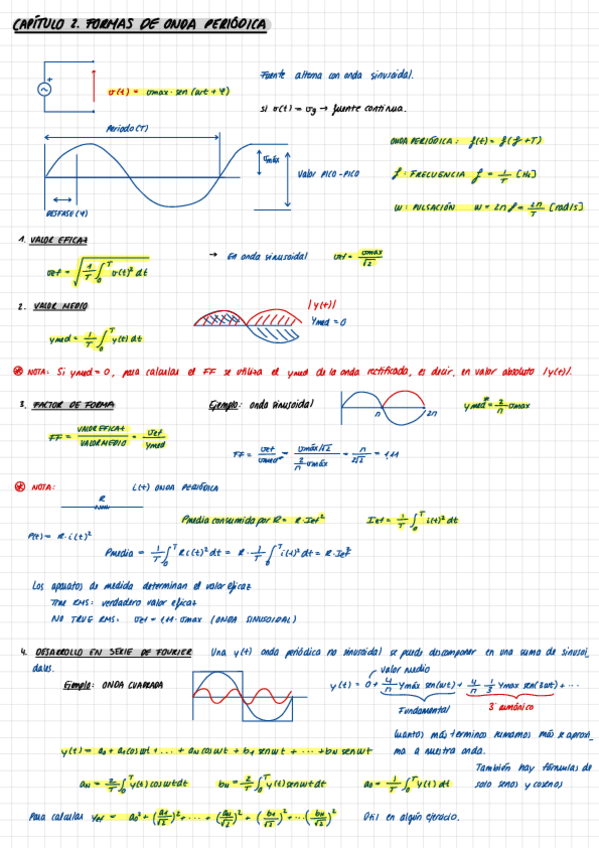 CAPÍTULO 2. FORMAS DE ONDA PERIÓDICA
Fuente alterna con onda sinusoidal.
+
v(t) = vmax · sen (wt + φ)
si v(t) = vg → fuente continua.
Periodo (T)
ONDA PERIÓDICA: f(t) = f(t + T)
vmáx
Valor PICO-PICO
f: FRECUENCIA f = 1/T [Hz]
DESFASE (φ)
W: PULSACIÓN W = 2π f = 2π/T [rad/s]
1. VALOR EFICAZ
vef = √(1/T ∫₀ᵀ v(t)² dt)
→ En onda sinusoidal vef = vmax/√2
2. VALOR MEDIO
|y(t)|
ymed = 0
ymed = 1/T ∫₀ᵀ y(t) dt
NOTA: Si ymed = 0, para calcular el FF se utiliza el ymed de la onda rectificada, es decir, en valor absoluto |y(t)|.
3. FACTOR DE FORMA
Ejemplo: onda sinusoidal
π 2π
ymed* = 2/π vmax
FF = VALOR EFICAZ / VALOR MEDIO = vef / ymed
FF = vef / vmed* = (vmáx/√2) / (2/π vmáx) = π / 2√2 = 1,11
NOTA: i(t) ONDA PERIÓDICA
R
Pmedia consumida por R = R · Ief²
Ief = 1/T ∫₀ᵀ i(t)² dt
P(t) = R · i(t)²
Pmedia = 1/T ∫₀ᵀ R i(t)² dt = R · 1/T ∫₀ᵀ i(t)² dt = R · Ief²
Los aparatos de medida determinan el valor eficaz
TRUE RMS: verdadero valor eficaz
NO TRUE RMS: vef = 1,11 · vmax (ONDA SINUSOIDAL)
4. DESAROLLO EN SERIE DE FOURIER Una y(t) onda periódica no sinusoidal se puede descomponer en una suma de sinusoi_
dales.
valor medio
Ejemplo: ONDA CUADRADA
y(t) = 0 + 4/π ymáx sen(wt) + 4/π 1/3 ymax sen(3wt) + ...
Fundamental
3º armónico
Cuantos más terminos sumamos más se aproxi_
ma a nuestra onda.
y(t) = a₀ + a₁cos wt + ... + aN cos wt + b₁ sen wt + ... + bN sen wt
También hay fórmulas de
solo senos y cosenos
aN = 2/T ∫₀ᵀ y(t) cos wt dt
bN = 2/T ∫₀ᵀ y(t) sen wt dt
a₀ = 1/T ∫₀ᵀ y(t) dt
Para calcular yef = a₀² + (a₁/√2)² + ... + (aN/√2)² + (b₁/√2)² + ... (bN/√2)²
en algún ejercicio.